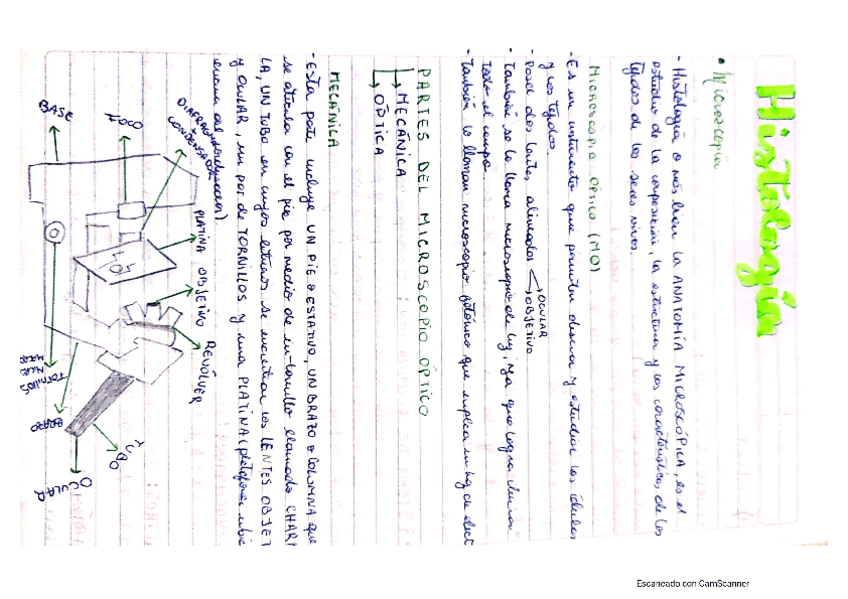 Histología
• Microscopía
- Histología o más bien la ANATOMÍA MICROSCÓPICA, es el
estudio de la composición, la estructura y las características de los
tejidos de los seres vivos.
MICROSCOPIO ÓPTICO (MO)
- Es un instrumento que permite observar y estudiar las células
y los tejidos
- Posee dos lentes, alineados
OCULAR
OBJETIVO
- También se le llama microscopio de luz, ya que logra
todo el campo
- También lo llaman microscopio fotónico que emplea un haz de
PARTES DEL MICROSCOPIO ÓPTICO
MECÁNICA
ÓPTICA
MECÁNICA
- Esta parte incluye UN PIE o ESTATIVO, UN BRAZO o COLUMNA que
se articula con el pie por medio de un tornillo llamado CHAR
LA, UN TUBO en cuyos extremos se encuentran los LENTES OBJET
y OCULAR, un par de TORNILLOS y una PLATINA (plataforma ubic
encima del condensador)
BASE
FOCO
DIAFRAGMA
CONDENSADOR
PLATINA
OBJETIVO
REVÓLVER
TORNILLOS
MICRO
MACRO
BRAZO
TUBO
OCULAR
Escaneado con CamScanner